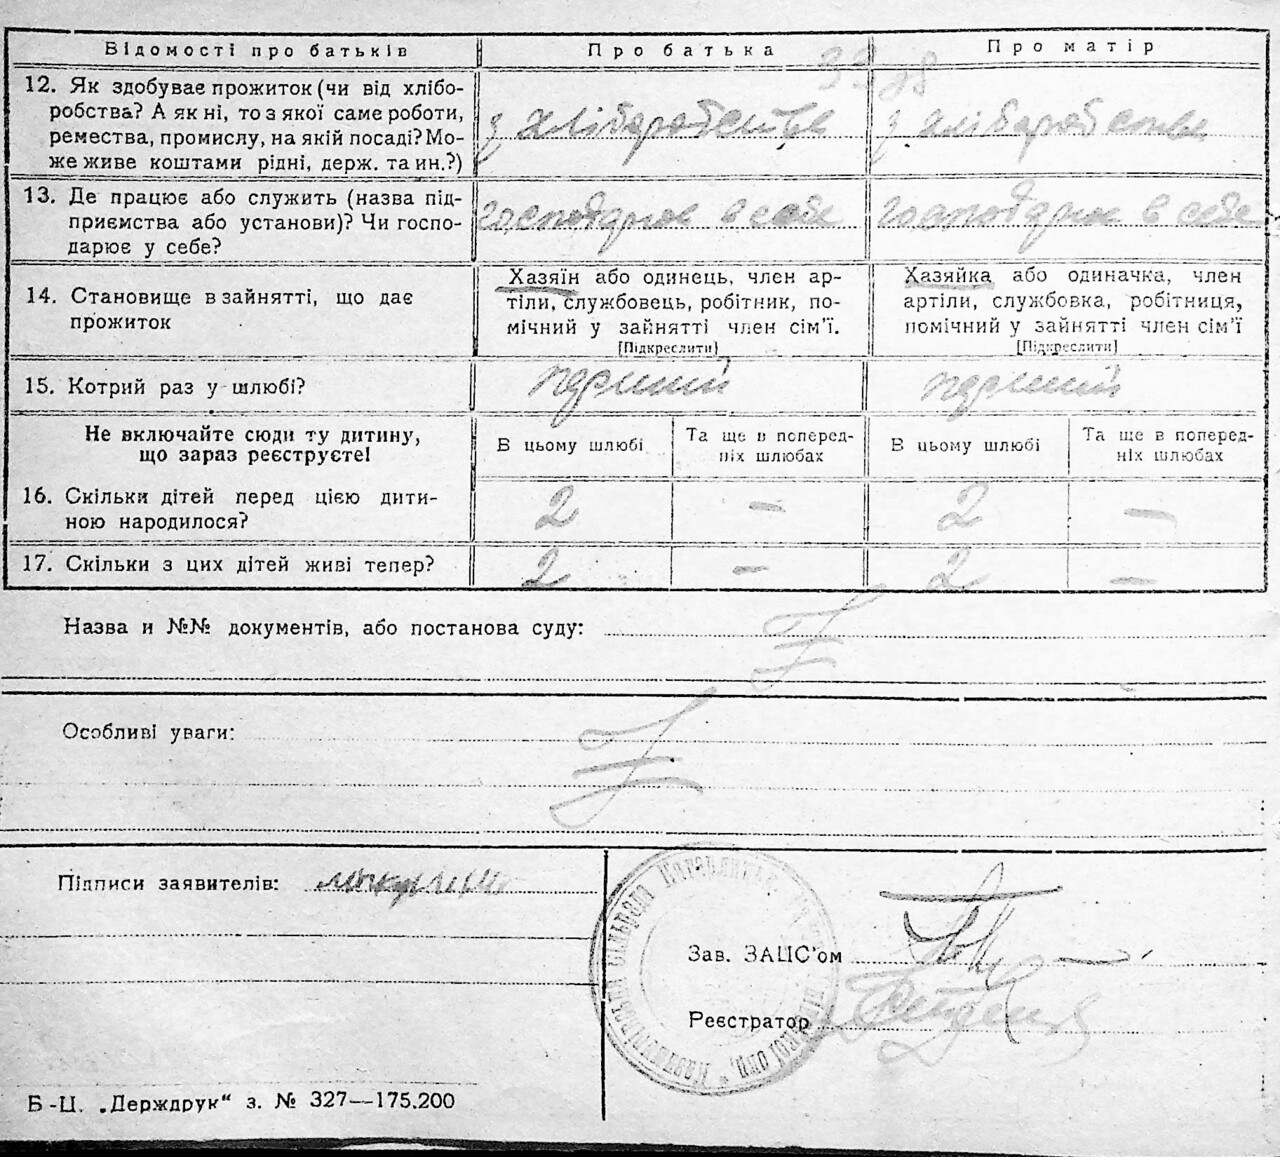 Відомості про батьків
Про батька
Про матір
12. Як здобуває прожиток (чи від хлібо-
робства? А як ні, то з якої саме роботи,
ремества, промислу, на якій посаді? Мо-
же живе коштами рідні, держ. та ин.?)
з хліборобства
з хліборобства
13. Де працює або служить (назва під-
приємства або установи)? Чи госпо-
дарює у себе?
господарює в себе
господарює в себе
14. Становище в зайнятті, що дає
прожиток
Хазяїн або одинець, член ар-
тілі, службовець, робітник, по-
мічний у зайнятті член сім'ї.
[Підкреслити]
Хазяйка або одиначка, член
артілі, службовка, робітниця,
помічний у зайнятті член сім'ї
[Підкреслити]
15. Котрий раз у шлюбі?
перший
перший
Не включайте сюди ту дитину,
що зараз реєструєте!
В цьому шлюбі
Та ще в поперед-
ніх шлюбах
В цьому шлюбі
Та ще в поперед-
ніх шлюбах
16. Скільки дітей перед цією дити-
ною народилося?
2 — 2 —
17. Скільки з цих дітей живі тепер?
2 — 2 —
Назва и №№ документів, або постанова суду:
Особливі уваги:
Підписи заявителів:
Зав. ЗАЦС'ом
Реєстратор
Б-Ц. „Держдрук“ з. № 327—175.200